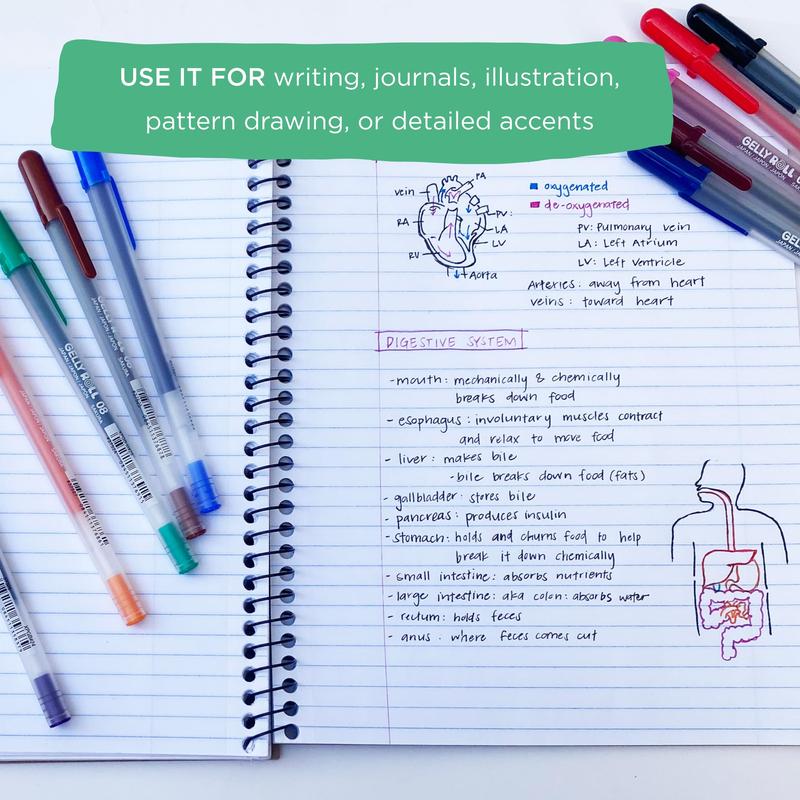 USE IT FOR writing, journals, illustration,
pattern drawing, or detailed accents
vein
PA
RA
RV
PV
LA
LV
Aorta
oxygenated
de-oxygenated
PV: Pulmonary vein
LA: Left Atrium
LV: Left Ventricle
Arteries: away from heart
veins: toward heart
DIGESTIVE SYSTEM
- mouth: mechanically & chemically
breaks down food
- esophagus: involuntary muscles contract
and relax to move food
- liver: makes bile
- bile breaks down food (fats)
- gallbladder: stores bile
- pancreas: produces insulin
- stomach: holds and churns food to help
break it down chemically
- small intestine: absorbs nutrients
- large intestine: aka colon: absorbs water
- rectum: holds feces
- anus: where feces comes out
GELLY ROLL 08
JAPAN/JAPON/JAPÓN
SAKURA
GELLY ROLL
JAPAN/JAPON/JAPÓN
GELLY